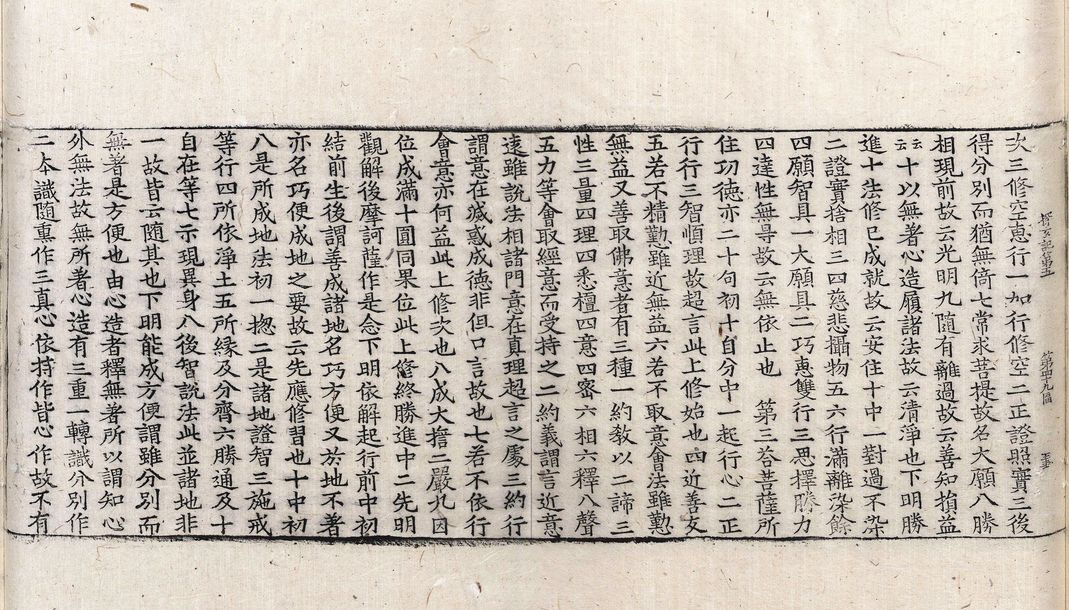 探玄記第五
次三修空恵行一加行修空二正證照實三後
得分別而猶無倚七常求菩提故名大願八勝
相現前故云光明九随有離過故云善知損益
云云十以無著心造履諸法故云清淨也下明勝
進十法修已成就故云安住十中一對過不染
二證實捨相三四慈悲攝物五六行滿離染餘
四願智具一大願具二巧惠雙行三思擇勝力
四達性無㝵故云無依止也　第三荅菩薩所
住功徳亦二十句初十自分中一起行心二正
行行三智順理故起言此上修始也四近善友
五若不精勤雖近無益六若不取意會法雖勤
無益又善取佛意者有三種一約教以二諦三
性三量四理四悉檀四意四密六相六釋八聲
五力等會取經意而受持之二約義謂言近意
逺雖說法相諸門意在真理超言之處三約行
謂意在滅惑成德非但口言故也七若不依行
會意亦何益此上修次也八成大擔二嚴九因
位成滿十圓同果位此上修終勝進中二先明
觀解後摩訶薩作是念下明依解起行前中初
結前生後謂善成諸地名巧方便又扵地不著
亦名巧便成地之要故云先應修習也十中初
八是所成地法初一揔二是諸地證智三施戒
等行四所依淨土五所緣及分齊六勝通及十
自在等七示現異身八後智說法此並諸地非
一故皆云随其也下明能成方便謂雖分別而
無著是方便也由心造者釋無著所以謂知心
外無法故無所著心造有三重一轉識分別作
二夲識随熏作三真心依持作皆心作故不有